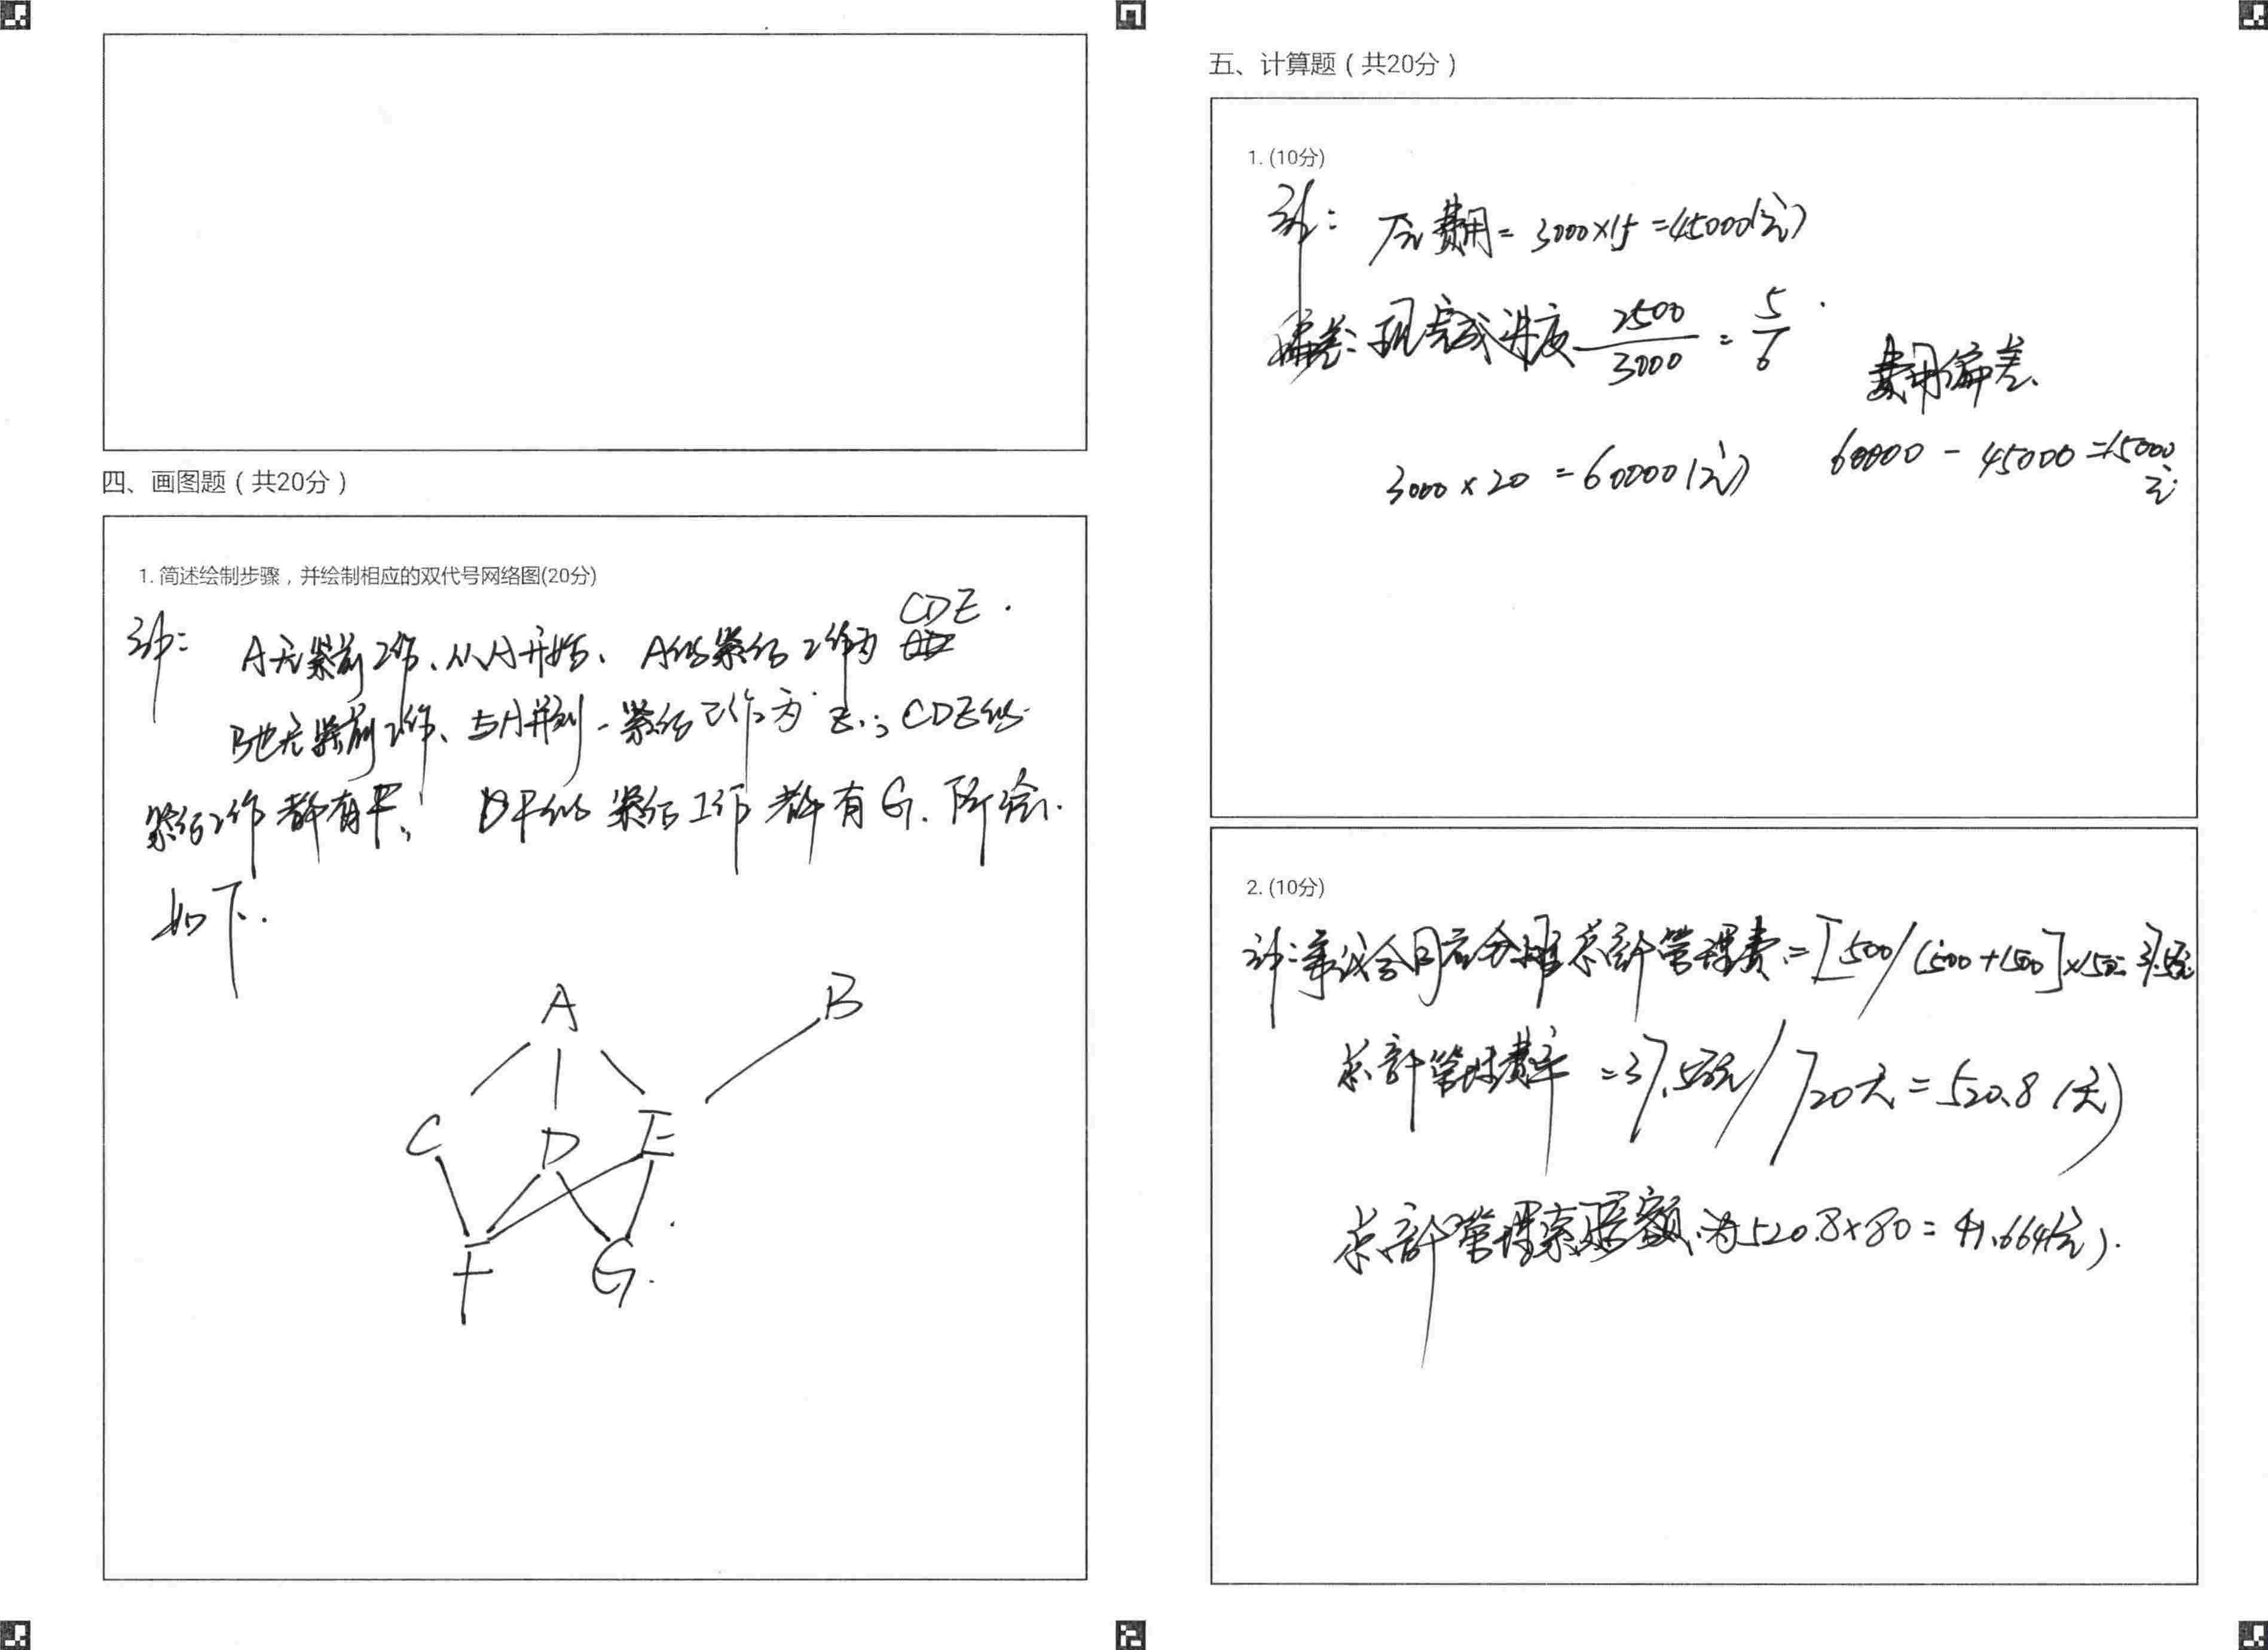 四、画图题（共20分）
1. 简述绘制步骤，并绘制相应的双代号网络图(20分)
解： A无紧前工作、从A开始、A的紧后工作为 CDE.
B也无紧前工作、与A并列、紧后工作为 E.; CDE的
紧后工作都有F; DF的紧后工作都有G. 所绘.
如下.
A
B
C D E
F G.
五、计算题（共20分）
1. (10分)
解： 费用= 3000×15 =45000(元)
偏差: 现完成进度 2500/3000 = 5/6
费用偏差
3000 × 20 = 60000(元)
60000 - 45000 =15000元
2. (10分)
解:争议合同应分摊总部管理费=[500/(500+1500]×150=37.5万元
总部管理费率 =37.5万元/720天 = 520.8 (天)
总部管理索赔额为520.8×80 = 41.664(元).